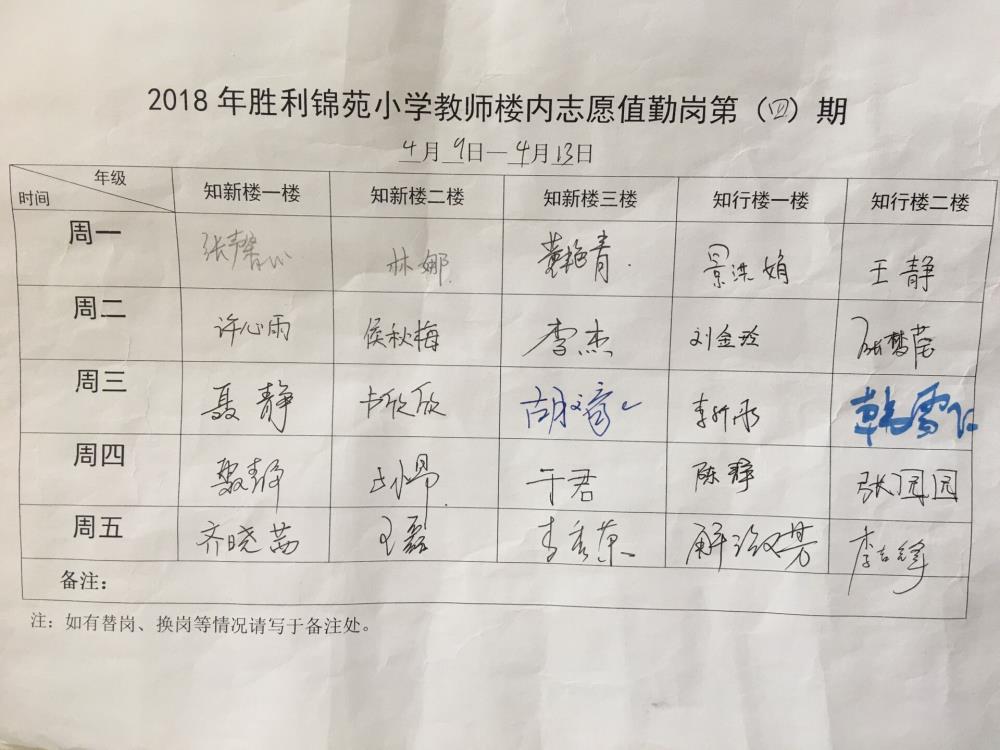 2018 年胜利锦苑小学教师楼内志愿值勤岗第（四）期
4月 9日—4月 13日
年级
时间
知新楼一楼 知新楼二楼 知新楼三楼 知行楼一楼 知行楼二楼
周一 张馨心 林娜 黄艳青 景洪娟 王静
周二 许心雨 侯秋梅 李杰 刘金玲 张梦莹
周三 聂静 卢欣欣 胡文容
周四 聂静 于君 陈静 张园园
周五 齐晓茜 王磊 李秀萍 解淑芳
备注：
注：如有替岗、换岗等情况请写于备注处。